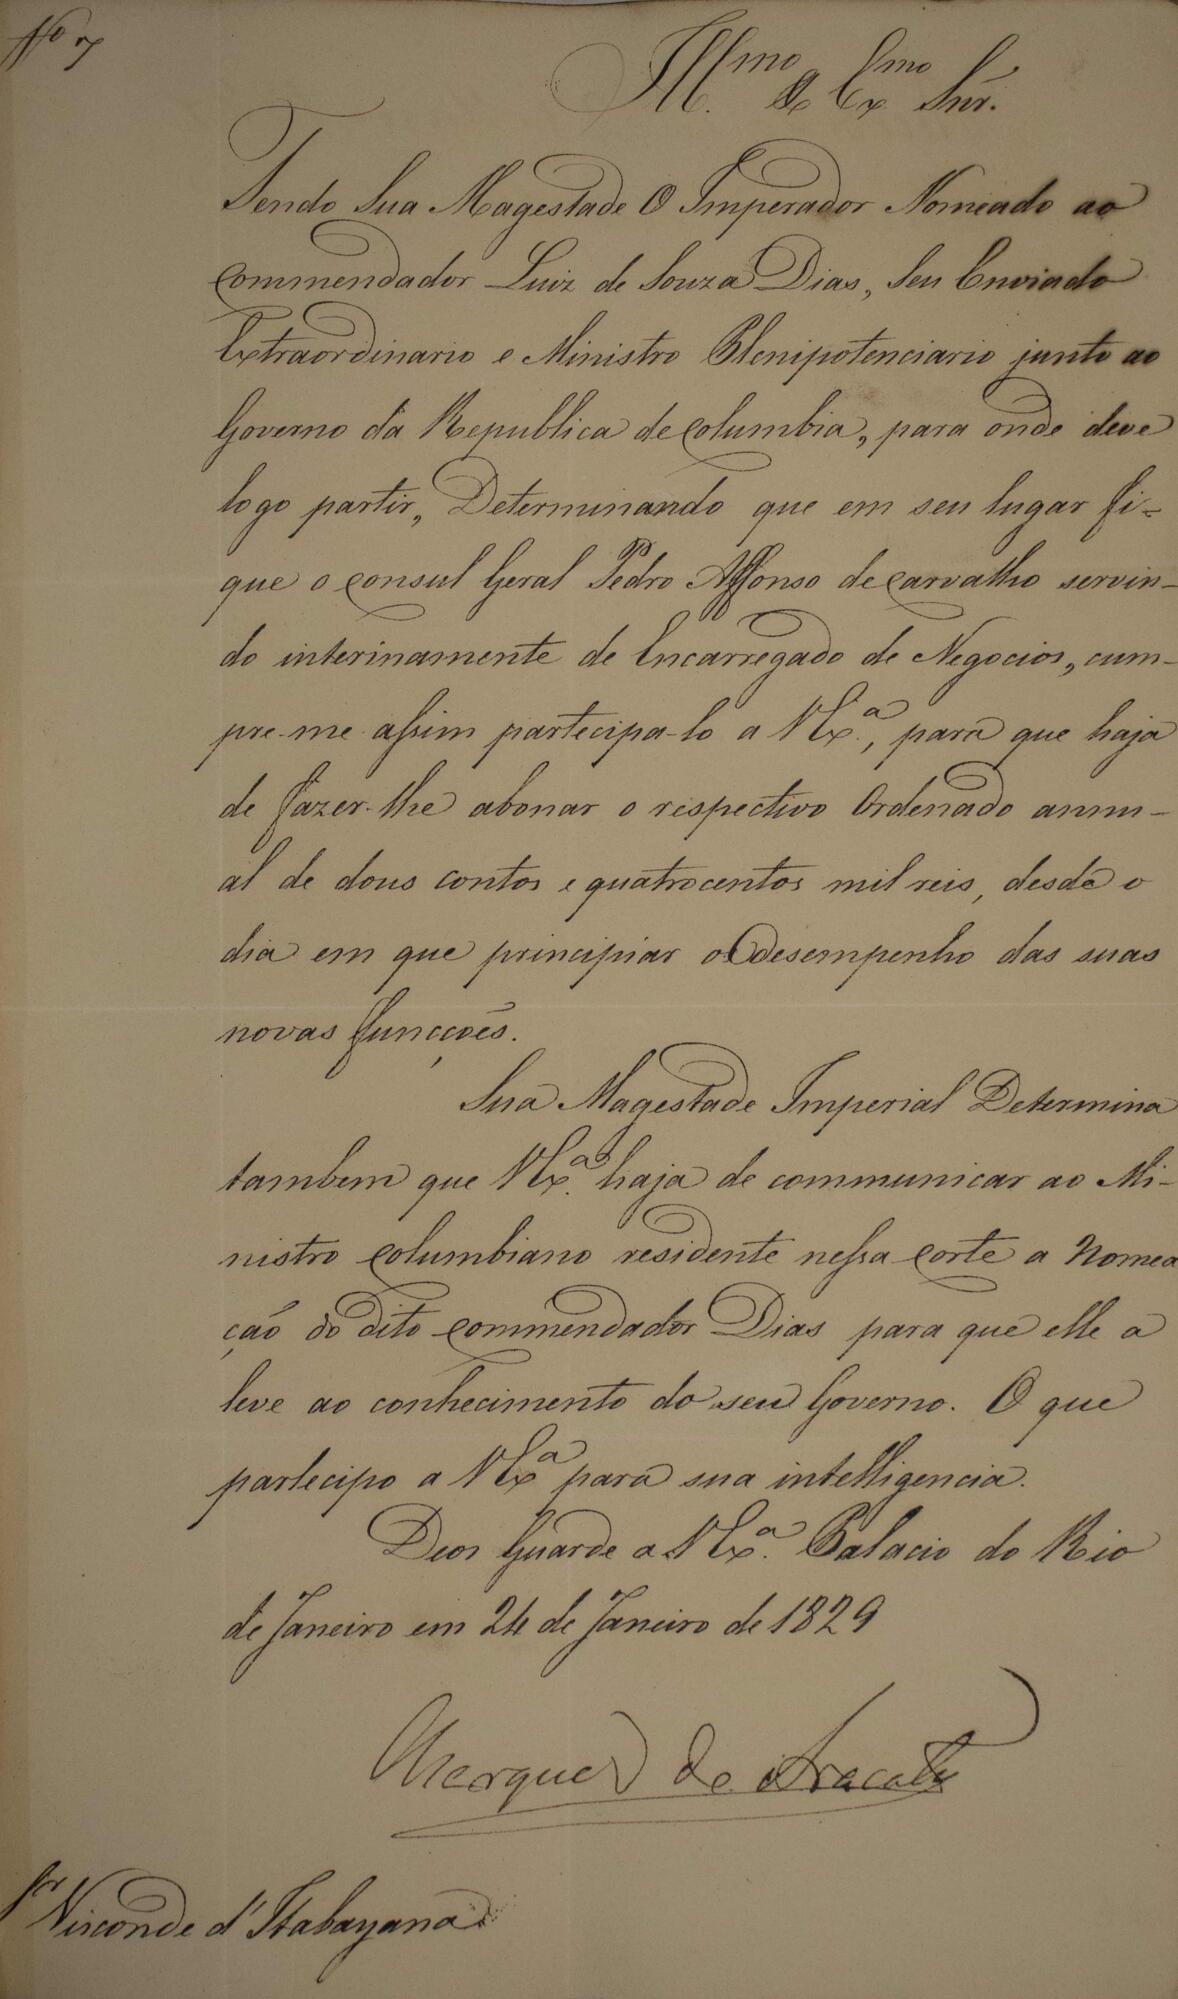 Nº 7
Ill.mo & Ex.mo Snr.
Tendo Sua Magestade O Imperador Nomeado ao
Commendador Luiz de Souza Dias, Seu Enviado
Extraordinario e Ministro Plenipotenciario junto ao
Governo da Republica de Columbia, para onde deve
logo partir, Determinando que em seu lugar fi=
que o Consul Geral Pedro Affonso de Carvalho servin-
do interinamente de Encarregado de Negocios, cum-
pre-me assim partecipa-lo a V Ex.ª, para que haja
de fazer-lhe abonar o respectivo Ordenado annu-
al de dous contos e quatrocentos mil reis, desde o
dia em que principiar o desempenho das suas
novas funcções.
Sua Magestade Imperial Determina
tambem que V Ex.ª haja de communicar ao Mi-
nistro Columbiano residente nessa Corte a Nomea
ção do dito Commendador Dias para que elle a
leve ao conhecimento do seu Governo. O que
partecipo a V Ex.ª para sua intelligencia.
Deos Guarde a V Ex.ª Palacio do Rio
de Janeiro em 24 de Janeiro de 1829
Marquez de Aracaty
Sr Visconde d'Itabayana